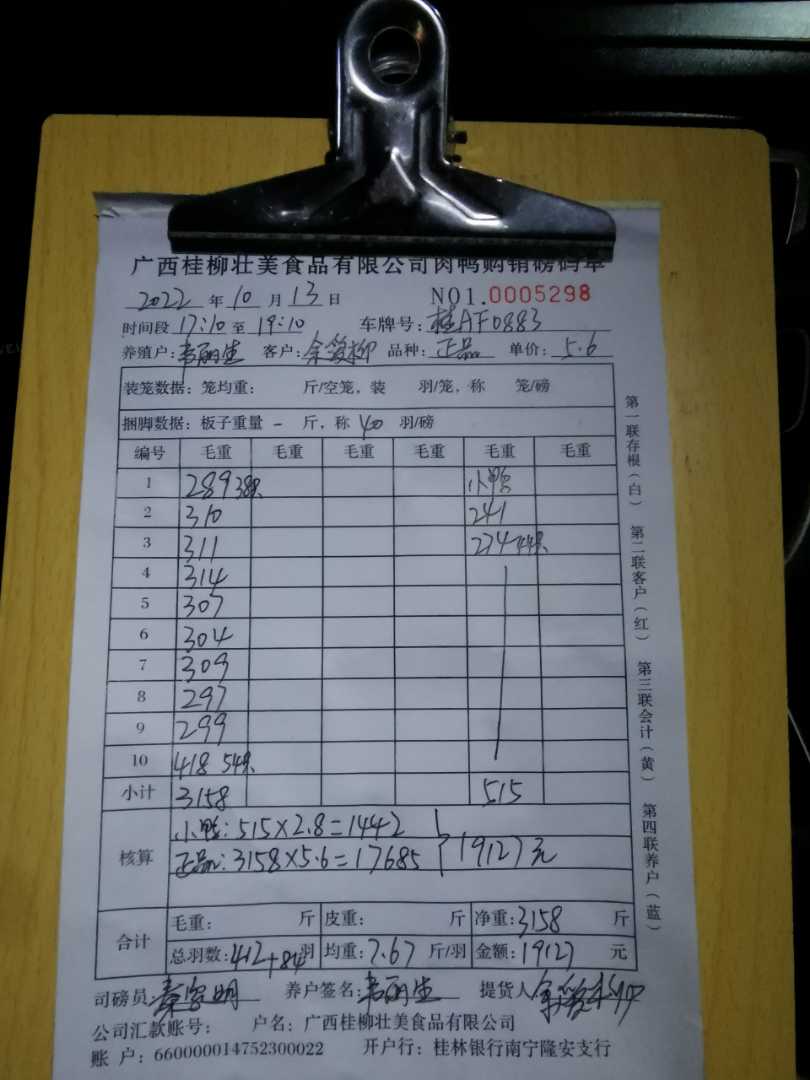 广西桂柳壮美食品有限公司肉鸭购销磅码单
2022 年 10 月 13 日 NO1.0005298
时间段 17:10 至 19:10 车牌号: 桂AF0883
养殖户: 韦丽生 客户: 品种: 正品 单价: 5.6
装笼数据: 笼均重: 斤/空笼, 装 羽/笼, 称 笼/磅
捆脚数据: 板子重量 - 斤, 称 40 羽/磅
编号 毛重 毛重 毛重 毛重 毛重 毛重
1 289 38只 小鸭
2 310 241
3 311 274 44只
4 314
5 307
6 304
7 309
8 297
9 299
10 418 54只
小计 3158 515
核算
小鸭: 515×2.8=1442
正品: 3158×5.6=17685 } 19127元
合计
毛重: 斤 皮重: 斤 净重: 3158 斤
总羽数: 412+84 羽 均重: 7.67 斤/羽 金额: 19127 元
司磅员: 养户签名: 韦丽生 提货人
公司汇款账号: 户名: 广西桂柳壮美食品有限公司
账 户: 660000014752300022 开户行: 桂林银行南宁隆安支行
第一联存根(白) 第二联客户(红) 第三联会计(黄) 第四联养户(蓝)